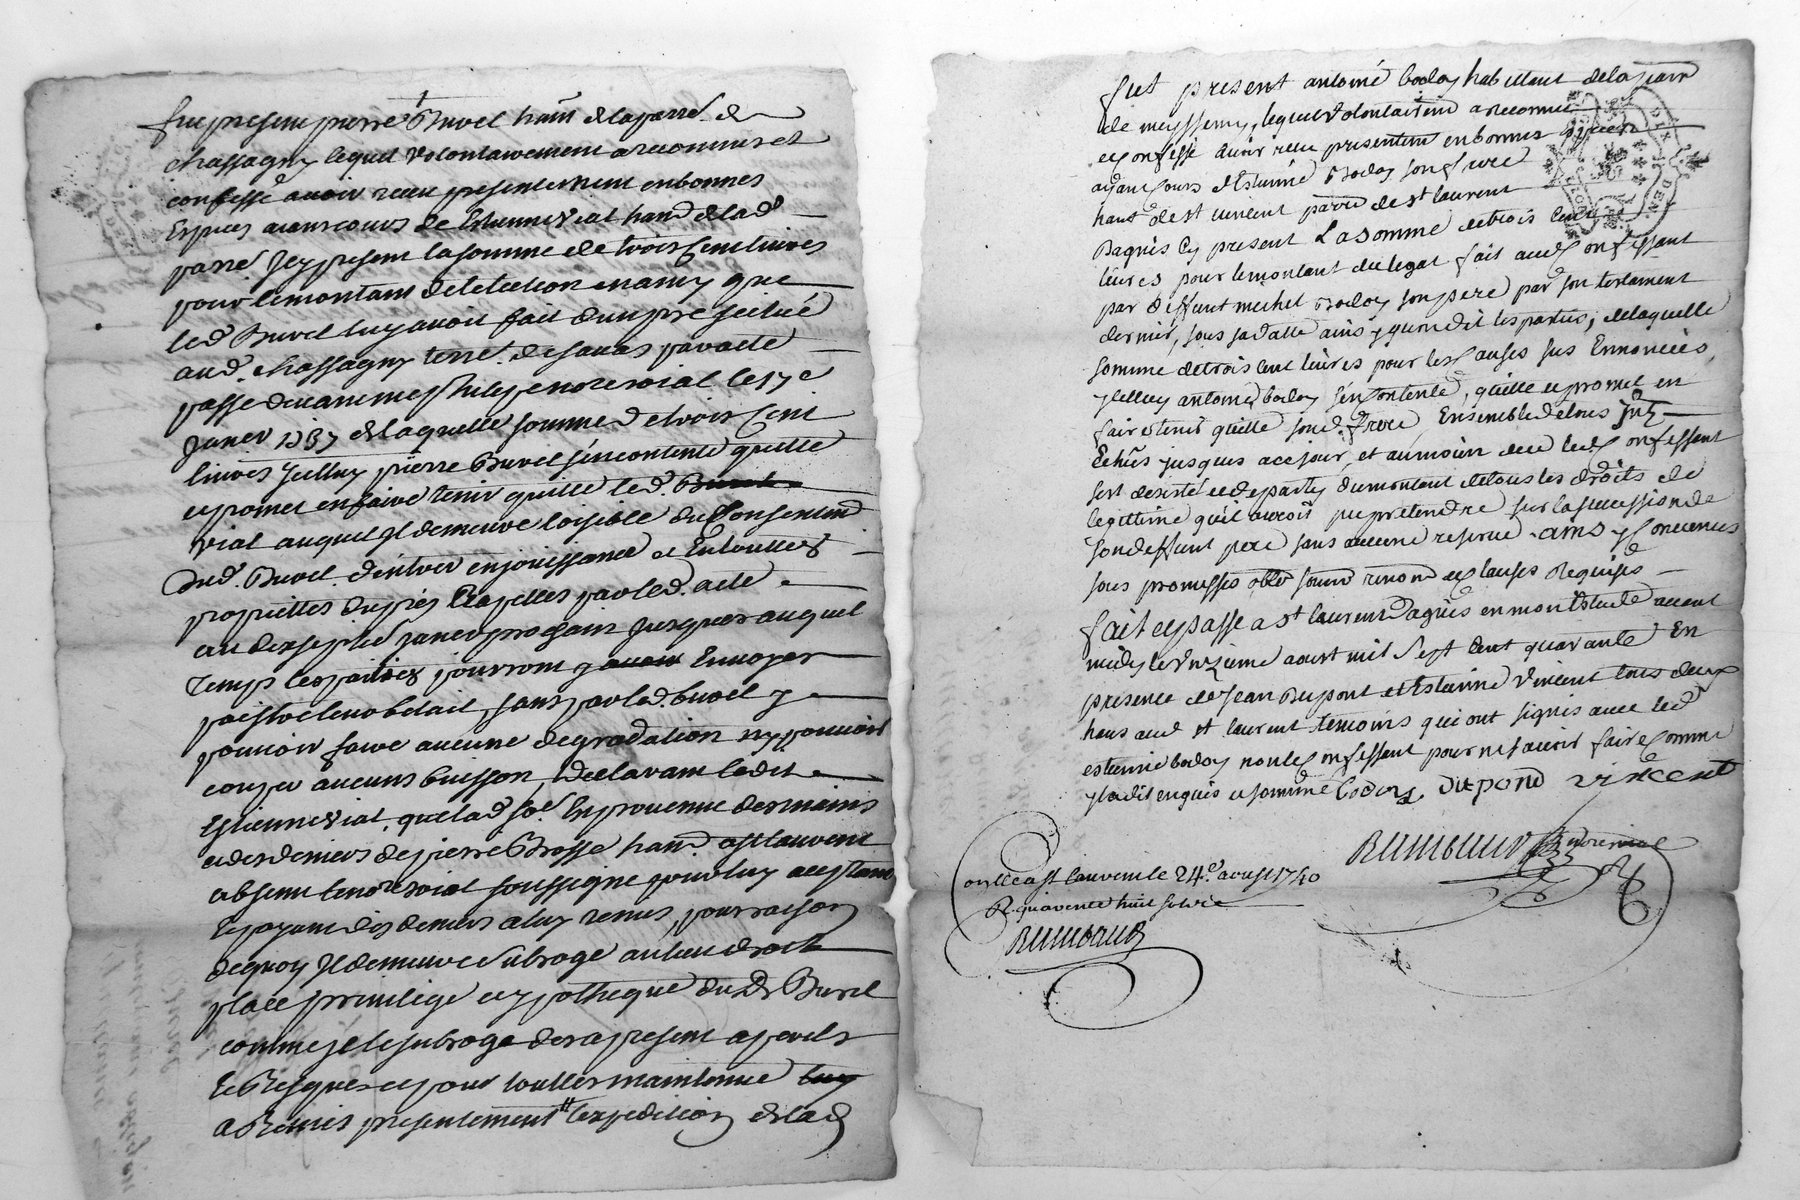 fut present pierre Buvel hant de la parr. de
chassagny lequel volontairement a reconnu et
confesse avoir receu presentement en bonnes
Espèces aiant cours de Estienne Vial hand de lad
parre Icy present la somme de trois Cent livres
pour le montant de letection enamy que
led Buvel luy avoit fait d'un pré scitué
aud. chassagny terre. de par acte
passé devant me not roial le 17e
Janer 1737 de laquelle somme de trois Cent
livres Icelluy pierre Buvel s'en contente quitte
et promet en faire tenir quitte led.
vial auquel Il demeure loisible du Consentemt
Dud. Buvel d'entrer en jouissance et En touttes
proprietés du prés Rapellés par led. acte
au dixsept Janer prochain Jusques auquel
temps les parties pourront y Envoyer
paistre leur betail, sans par led. buvel y
pouvoir faire aucune degradation ny pouvoir
couper aucuns buisson, Declarant ledit
Estienne Vial, que lad. so.e En provenue des mains
et des deniers de pierre Brosse hand. a st laurent
absent le nore roial soussigné pour luy acceptant
Et payant des deniers a luy remis, pour raison
dequoy Il demeure subrogé au lieu droit
place privilege et ypotheque du Dr Buvel
comme Il le subroge des a present a perils
Et Risques et pour touttes maintenue
a Remis presentement l'expedition de lad
fut present antoine boday habittant de la parr
de meyssemy, lequel volontairemt a reconnu
et confessé avoir receu presentemt en bonnes espèces
ayant cours d'Estienne Boday son frere
hant de st vincent parre de st laurent
Dagnis Cy present La somme de trois Cent
livres pour le montant du legat fait aud Confessant
par deffunt michel Boday son pere par son testament
dernier, sous sa datte ainsy qu'on dit les parties, de laquelle
somme de trois Cent livres pour les Causes sus Ennoncées,
ycelluy antoine boday s'en Contente, quitte et promet en
faire tenir quitte sond. frere, Ensemble de tous Intz
Echûs jusques a ce jour, et au moien de ce led. Confessant
sest desisté et departy du montant de tous les droits de
legittime qu'il auroit pu pretendre sur la succession de
son deffunt pere sans aucune reserve. ainsy Convenus
sous promesses oblô soumô renonô et clauses Requises
fait et passé a st laurent Dagnis en mon Estude avant
midy le onzieme aoust mil Sept Cent quarante En
presence de Jean Dupont et Estienne Vincent tous deux
hans aud st laurent temoins qui ont signés avec led
estienne boday non le Confessant pour ne scavoir faire Comme
yl a dit enquis et sommé boday, dupond vincent
Rimbaud nore roial
Conllé a st laurent le 24e. aoust 1740
R. quarente huit sols
Rimbaud